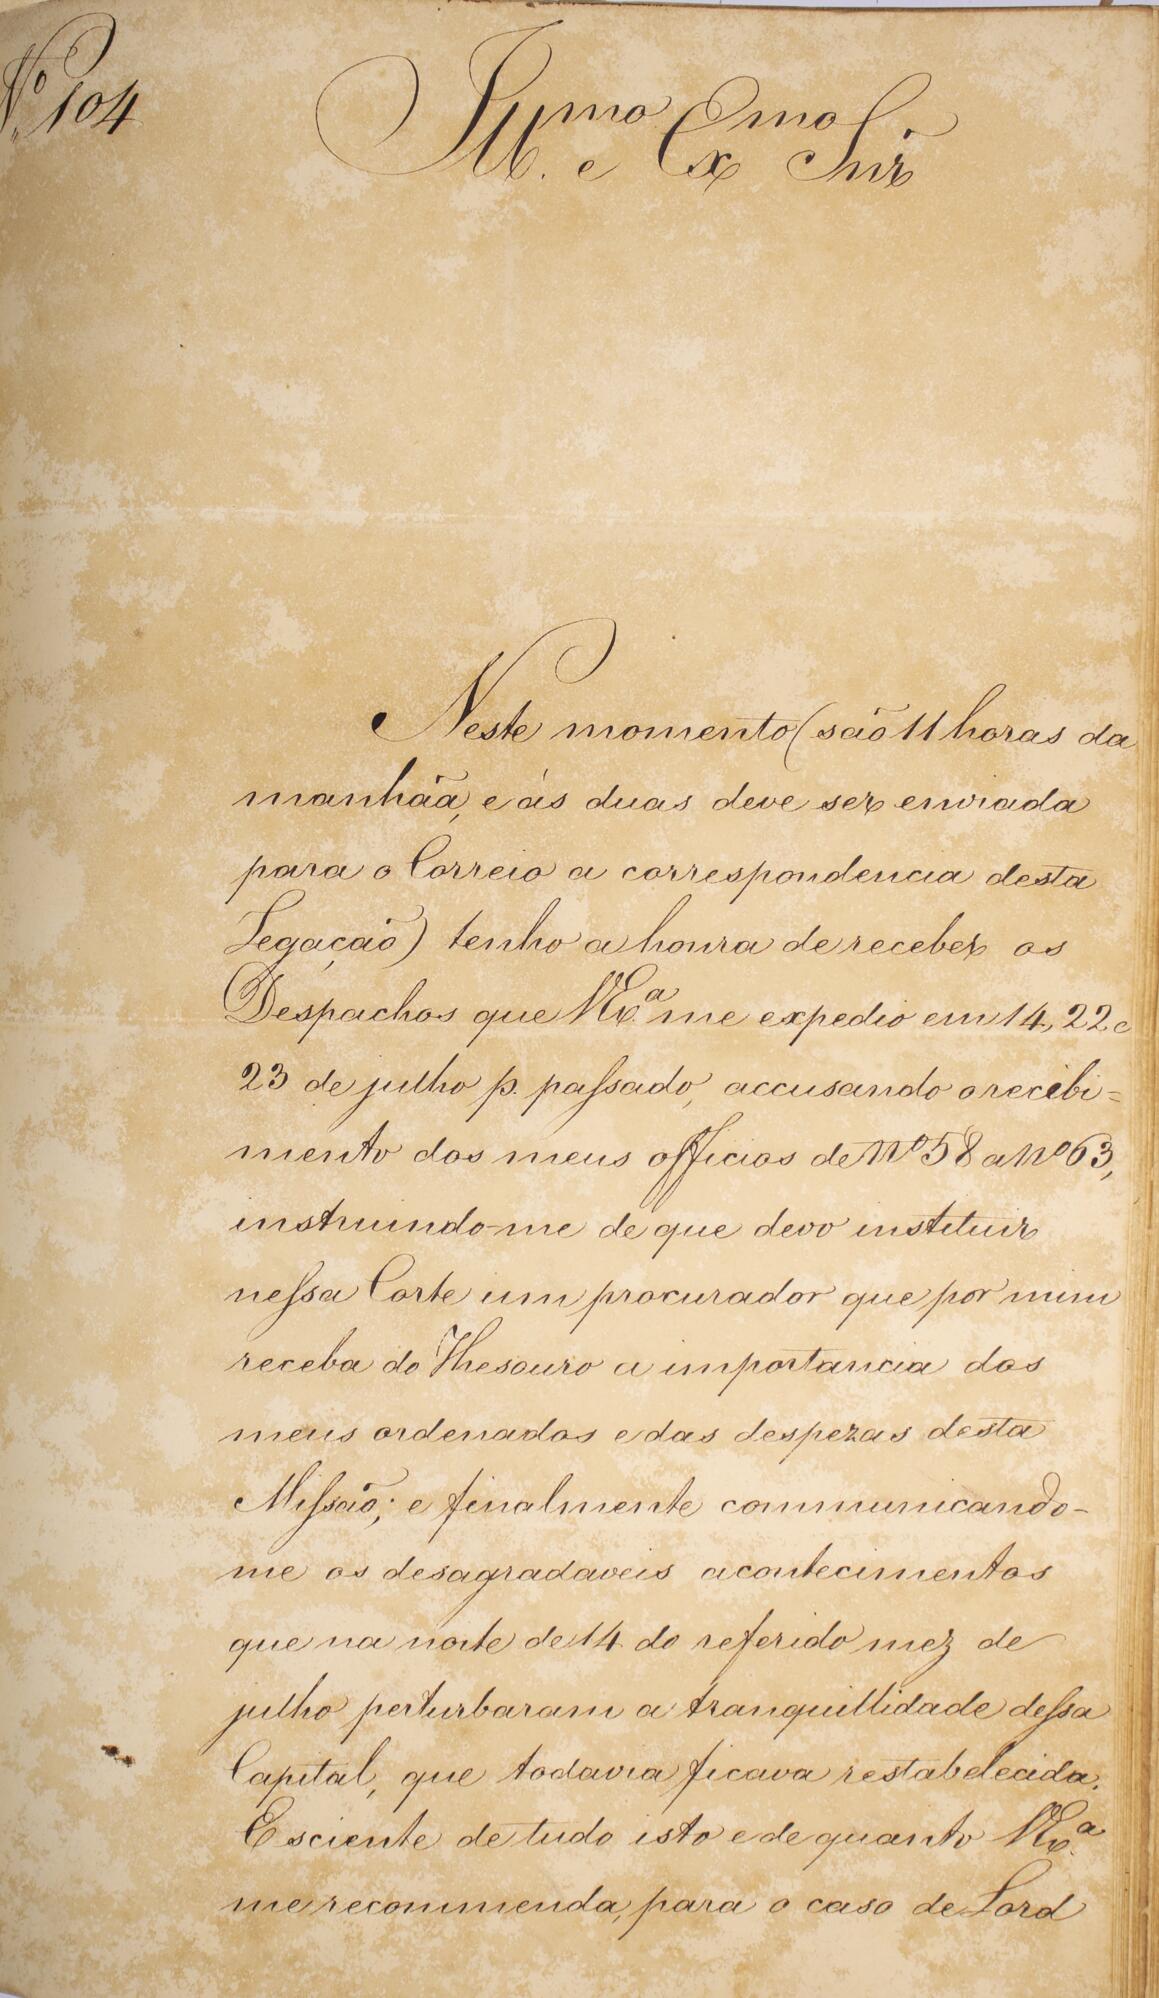 Nº 104
Ill.mo e Ex.mo Snr
Neste momento (são 11 horas da
manhãa, e ás duas deve ser enviada
para o Correio a correspondencia desta
Legação) tenho a honra de receber os
Despachos que V Ex.ª me expedio em 14, 22 e
23 de julho p. passado, accusando o recebi=
mento dos meus officios de Nº 58 a Nº 63,
instruindo-me de que devo instituir
nessa Corte um procurador que por mim
receba do Thesouro a importancia dos
meus ordenados e das despezas desta
Missão; e finalmente communicando-
me os desagradaveis acontecimentos
que na noite de 14 do referido mez de
julho perturbaram a tranquillidade dessa
Capital, que todavia ficava restabelecida.
E sciente de tudo isto e de quanto V Ex.ª
me recommenda, para o caso de Lord